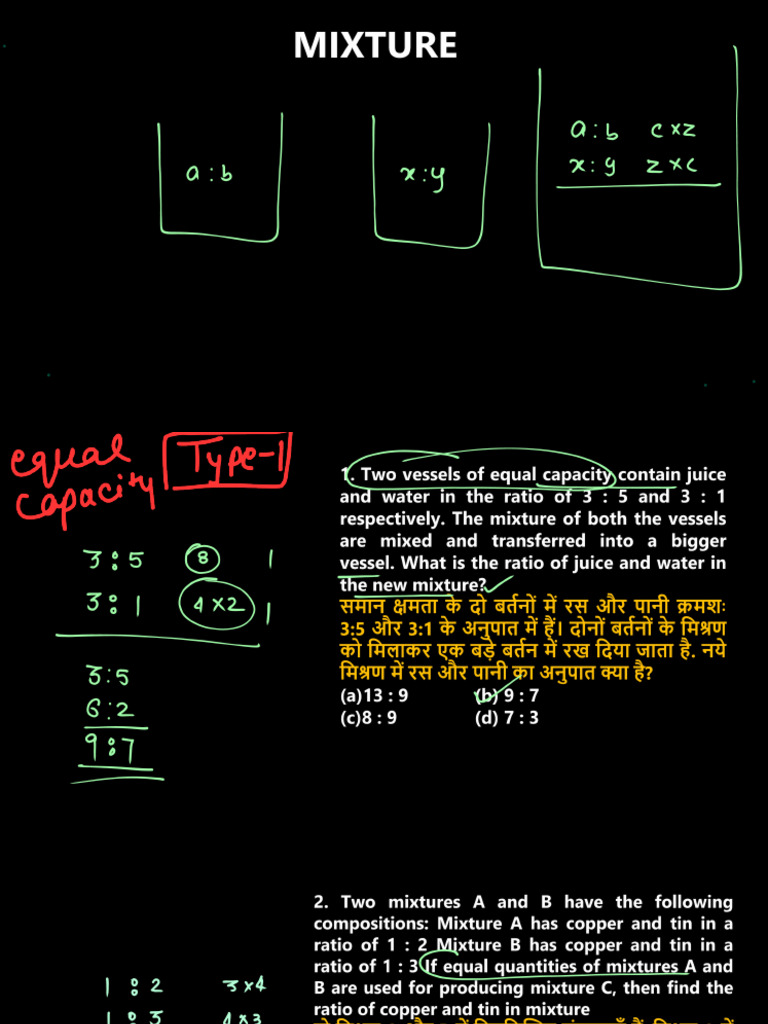 MIXTURE
a : b
x : y
a : b c×z
x : y z×c
equal
capacity
Type-1
3 : 5 8 1
3 : 1 4×2 1
3 : 5
6 : 2
9 : 7
1. Two vessels of equal capacity contain juice
and water in the ratio of 3 : 5 and 3 : 1
respectively. The mixture of both the vessels
are mixed and transferred into a bigger
vessel. What is the ratio of juice and water in
the new mixture?
समान क्षमता के दो बर्तनों में रस और पानी क्रमशः
3:5 और 3:1 के अनुपात में हैं। दोनों बर्तनों के मिश्रण
को मिलाकर एक बड़े बर्तन में रख दिया जाता है. नये
मिश्रण में रस और पानी का अनुपात क्या है?
(a)13 : 9 (b) 9 : 7
(c)8 : 9 (d) 7 : 3
2. Two mixtures A and B have the following
compositions: Mixture A has copper and tin in a
ratio of 1 : 2 Mixture B has copper and tin in a
ratio of 1 : 3 If equal quantities of mixtures A and
B are used for producing mixture C, then find the
ratio of copper and tin in mixture
1 : 2 3×4
1 : 3 4×3